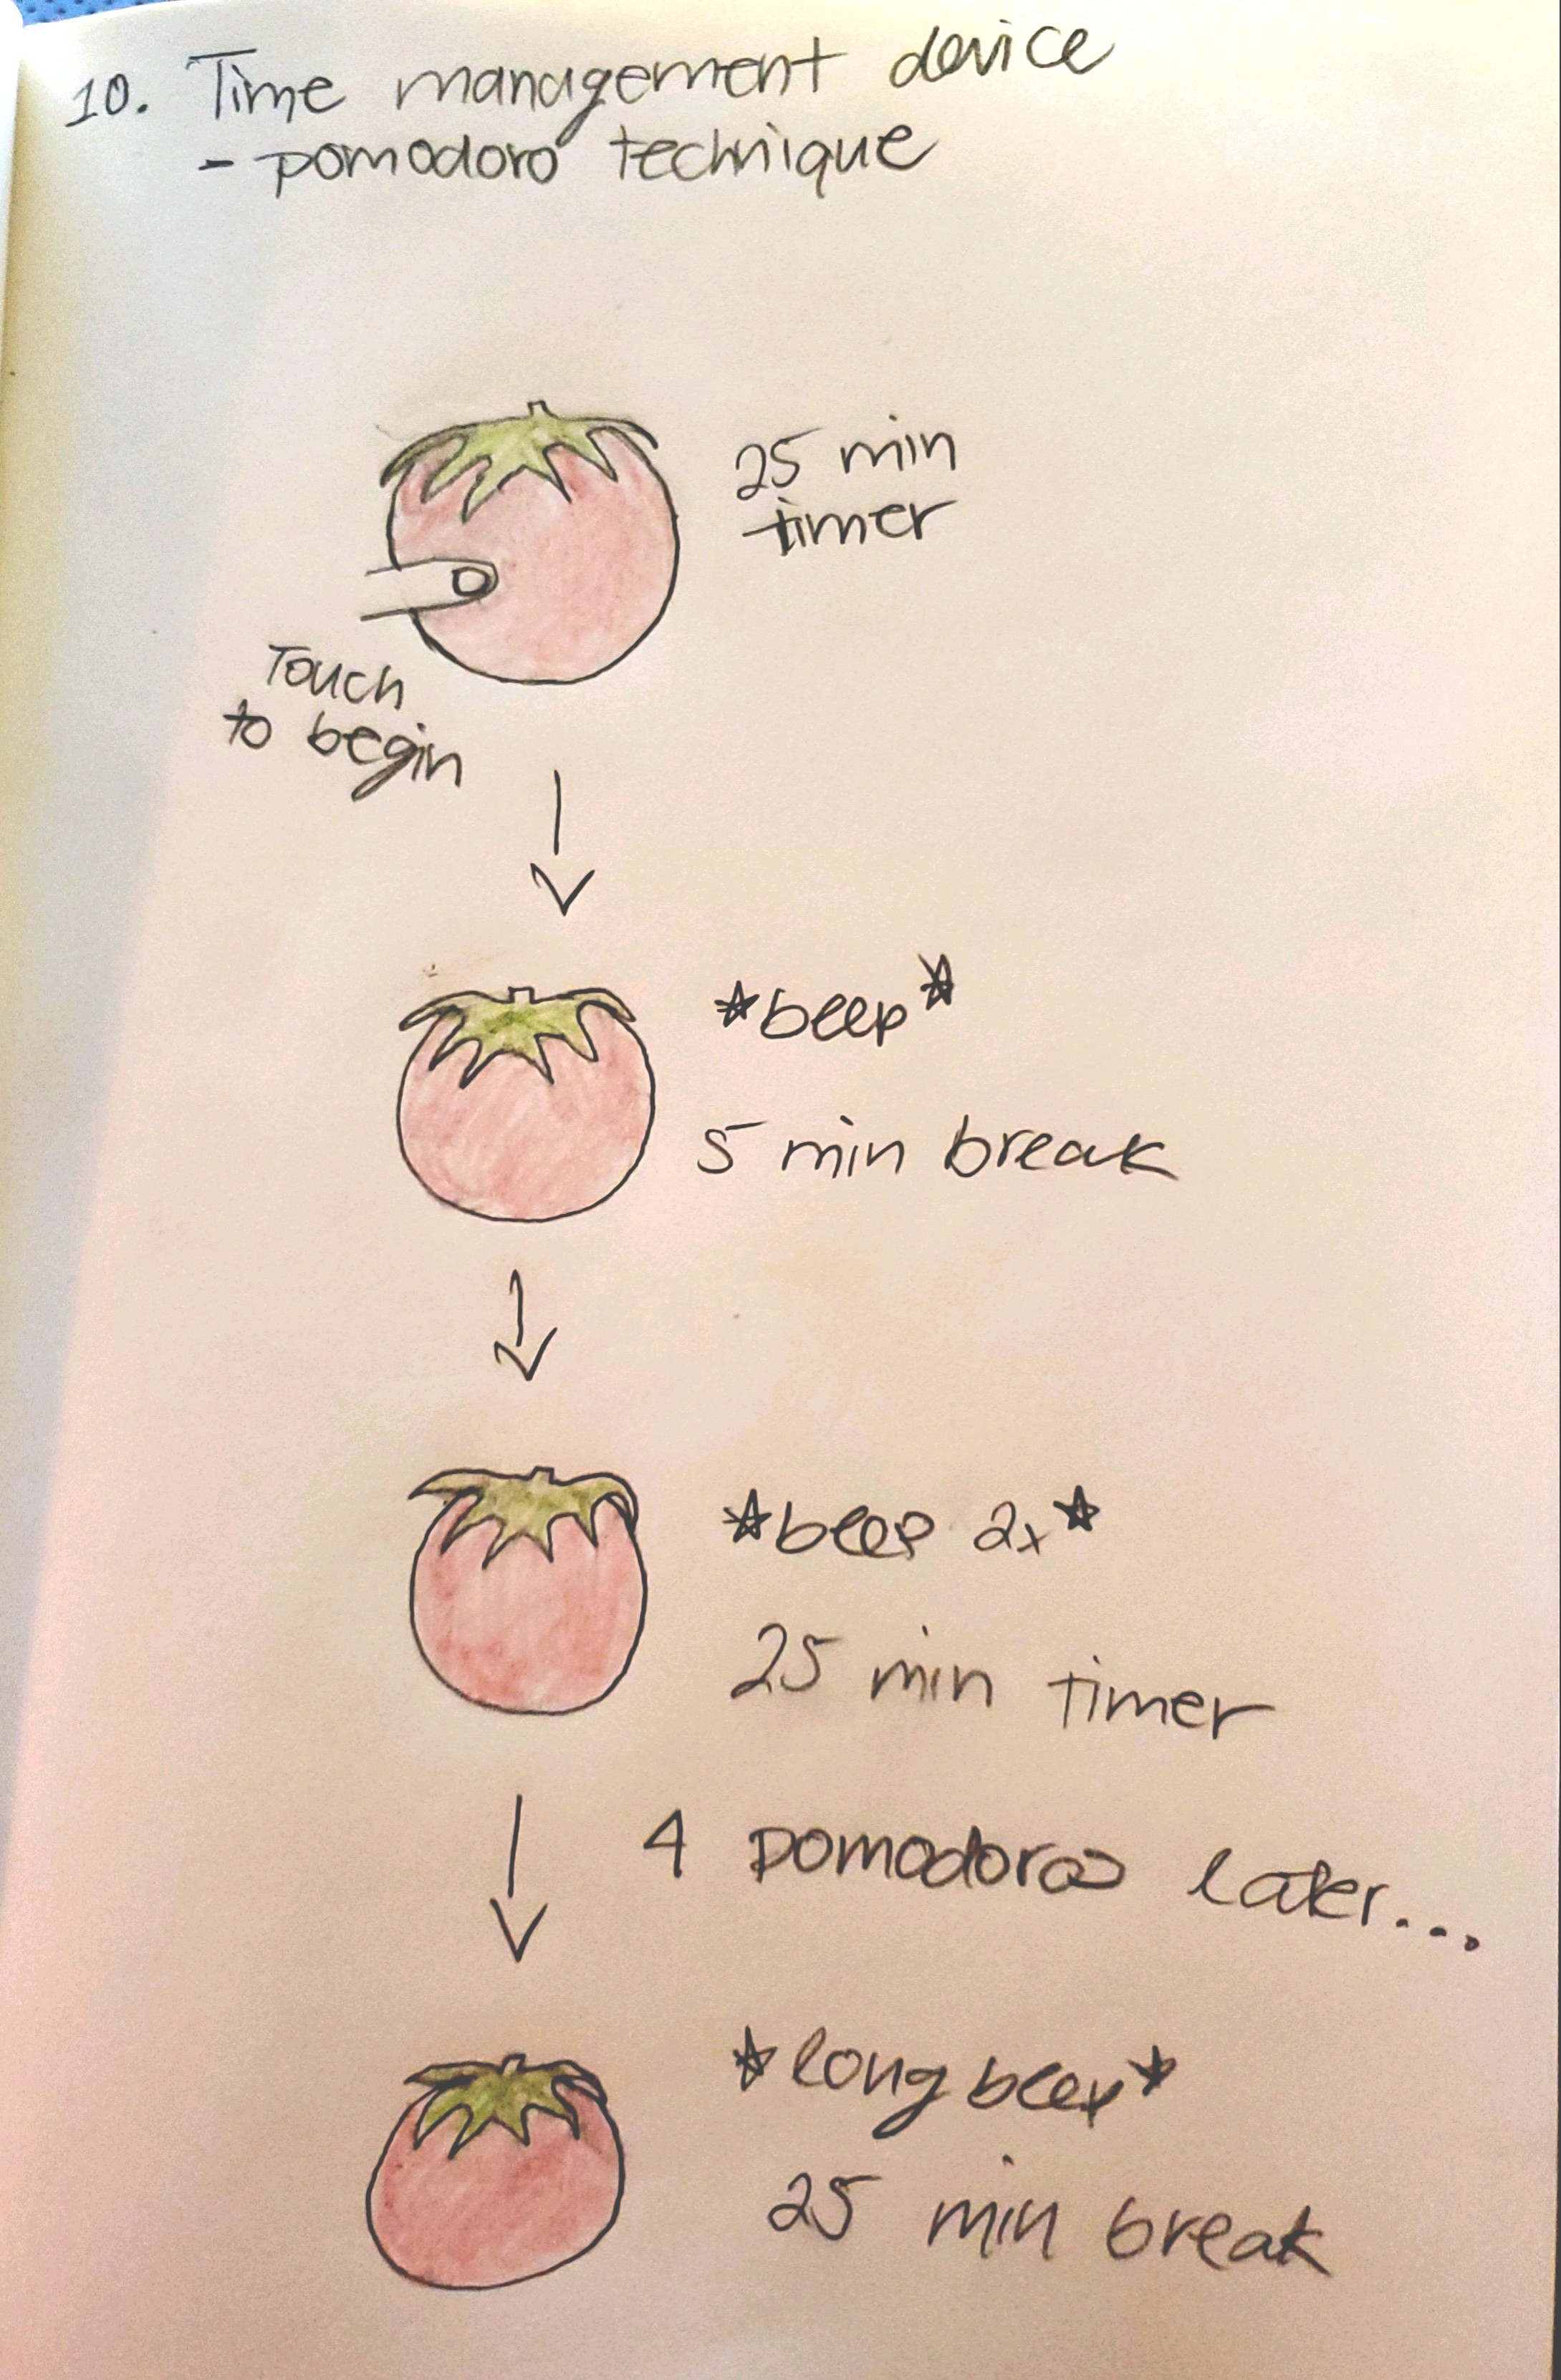 10. Time management device
- pomodoro technique
25 min
timer
Touch
to begin
*beep*
5 min break
*beep 2x*
25 min timer
4 pomodoros later...
*long beep*
25 min break